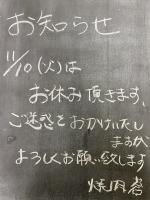 お知らせ
11/10(火)は
お休み頂きます、
ご迷惑をおかけいたし
ますが
よろしくお願い致します
焼肉